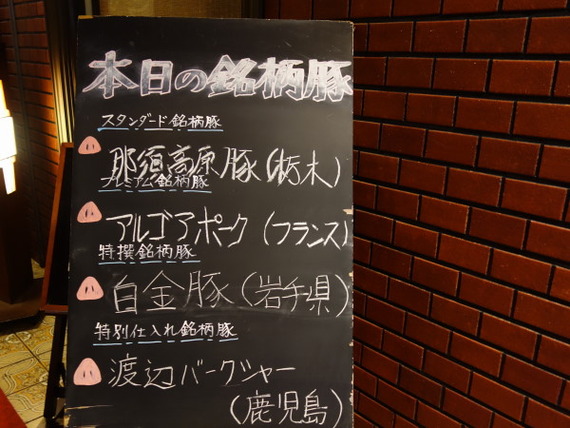 本日の銘柄豚
スタンダード銘柄豚
那須高原豚(栃木)
プレミアム銘柄豚
アルゴアポーク(フランス)
特撰銘柄豚
白金豚(岩手県)
特別仕入れ銘柄豚
渡辺バークシャー
(鹿児島)